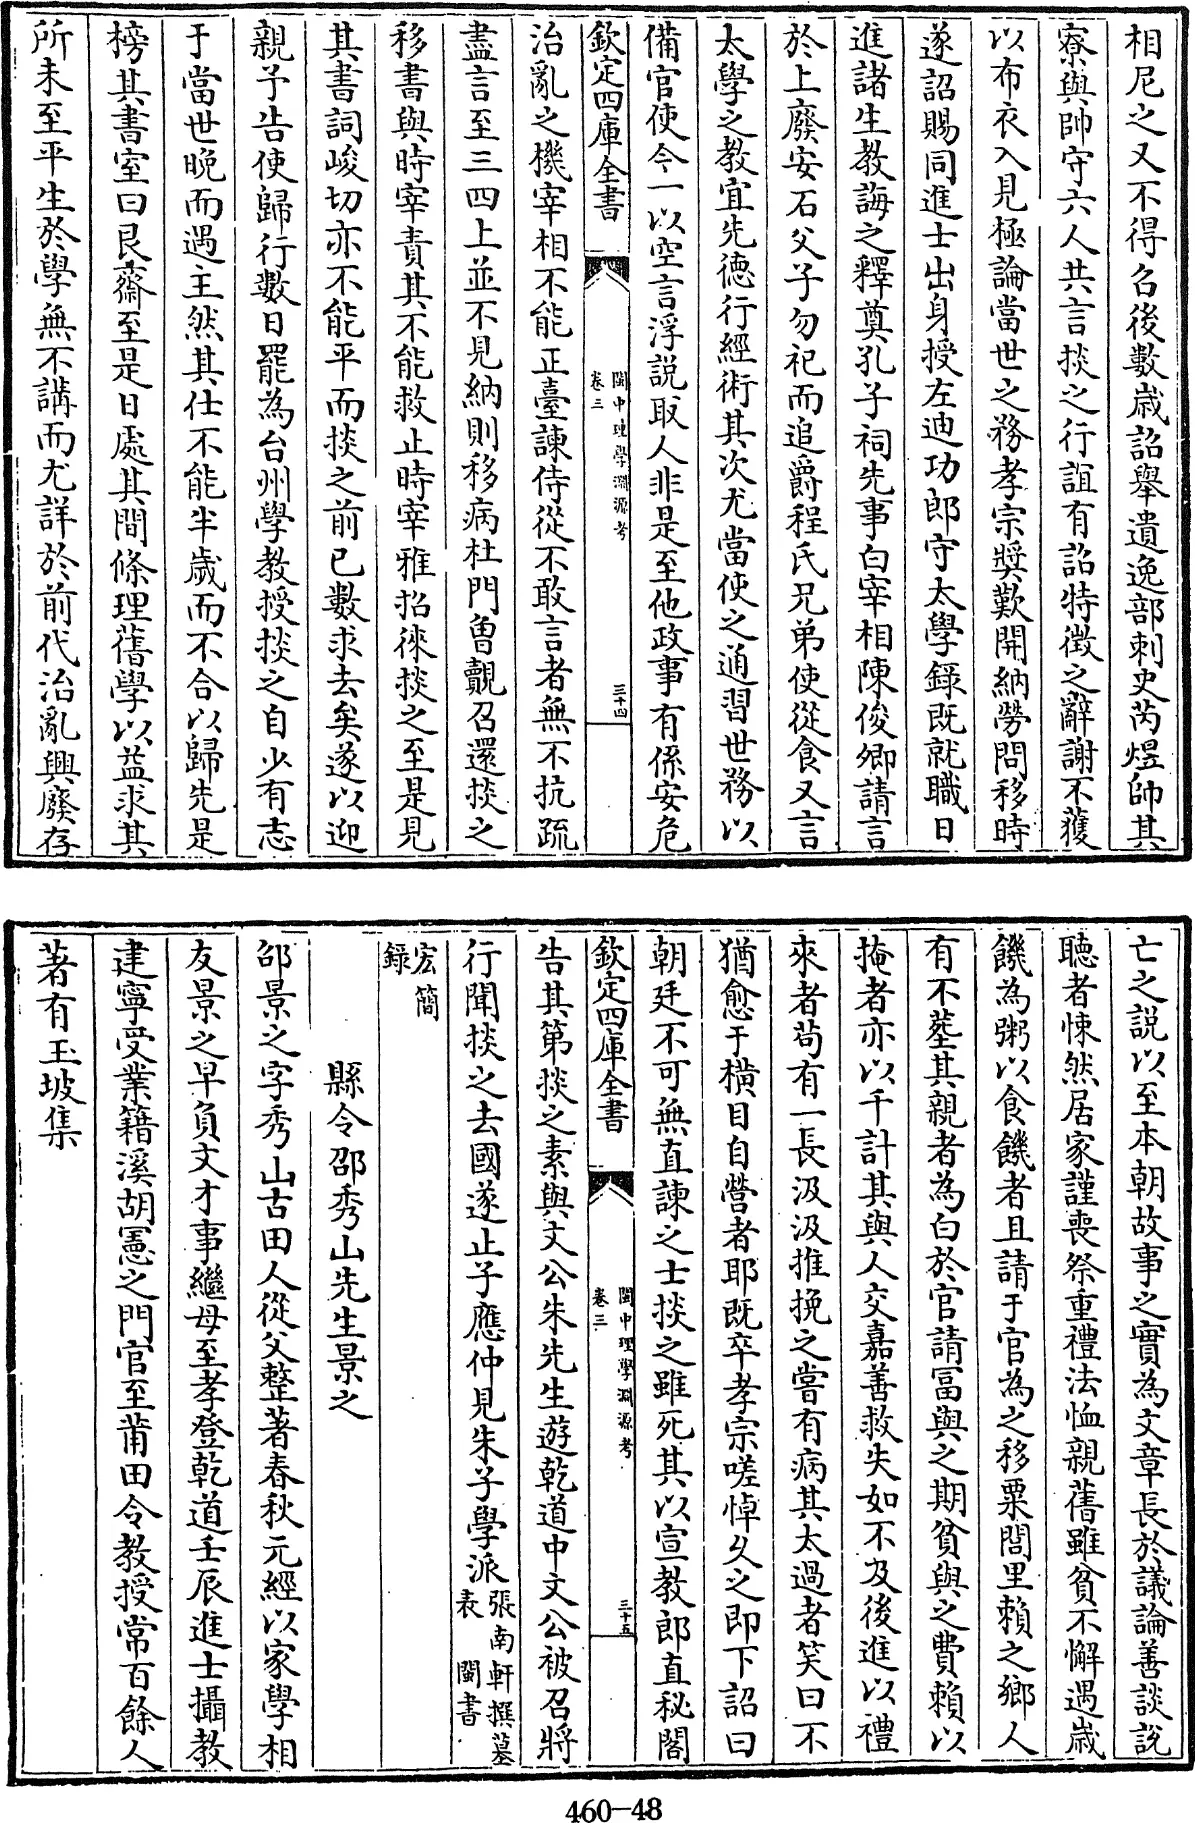 相尼之又不得召後數歳詔舉遺逸部刺史芮煜帥其
寮與帥守六人共言掞之行誼有詔特徴之辭謝不獲
以布衣入見極論當世之務孝宗奬歎開納勞問移時
遂詔賜同進士出身授左迪功郎守太學録既就職日
進諸生教誨之釋奠孔子祠先事白宰相陳俊卿請言
於上廢安石父子勿祀而追爵程氏兄弟使從食又言
太學之教宜先德行經術其次尤當使之通習世務以
備官使今一以空言浮説取人非是至他政事有係安危
欽定四庫全書
閩中理學淵源考
卷三
三十四
治亂之機宰相不能正臺諫侍從不敢言者無不抗疏
盡言至三四上並不見納則移病杜門曽覿召還掞之
移書與時宰責其不能救止時宰雅招徠掞之至是見
其書詞峻切亦不能平而掞之前已數求去矣遂以迎
親予告使歸行數日罷為台州學教授掞之自少有志
于當世晩而遇主然其仕不能半歳而不合以歸先是
榜其書室曰艮齋至是日處其間條理舊學以益求其
所未至平生於學無不講而尤詳於前代治亂興廢存
亡之説以至本朝故事之實為文章長於議論善談説
聴者悚然居家謹喪祭重禮法恤親舊雖貧不懈遇歳
饑為粥以食饑者且請于官為之移粟閭里賴之鄉人
有不塟其親者為白於官請冨與之期貧與之費賴以
掩者亦以千計其與人交嘉善救失如不及後進以禮
來者茍有一長汲汲推挽之嘗有病其太過者笑曰不
猶愈于横目自營者耶既卒孝宗嗟悼乆之即下詔曰
朝廷不可無直諫之士掞之雖死其以宣教郎直秘閣
欽定四庫全書
閩中理學淵源考
卷三
三十五
告其第掞之素與文公朱先生遊乾道中文公被召將
行聞掞之去國遂止子應仲見朱子學派張南軒撰墓
表　閩書
宏簡
録
縣令邵秀山先生景之
邵景之字秀山古田人從父整著春秋元經以家學相
友景之早負文才事繼母至孝登乾道壬辰進士攝教
建寧受業籍溪胡憲之門官至莆田令教授常百餘人
著有玉坡集
460-48